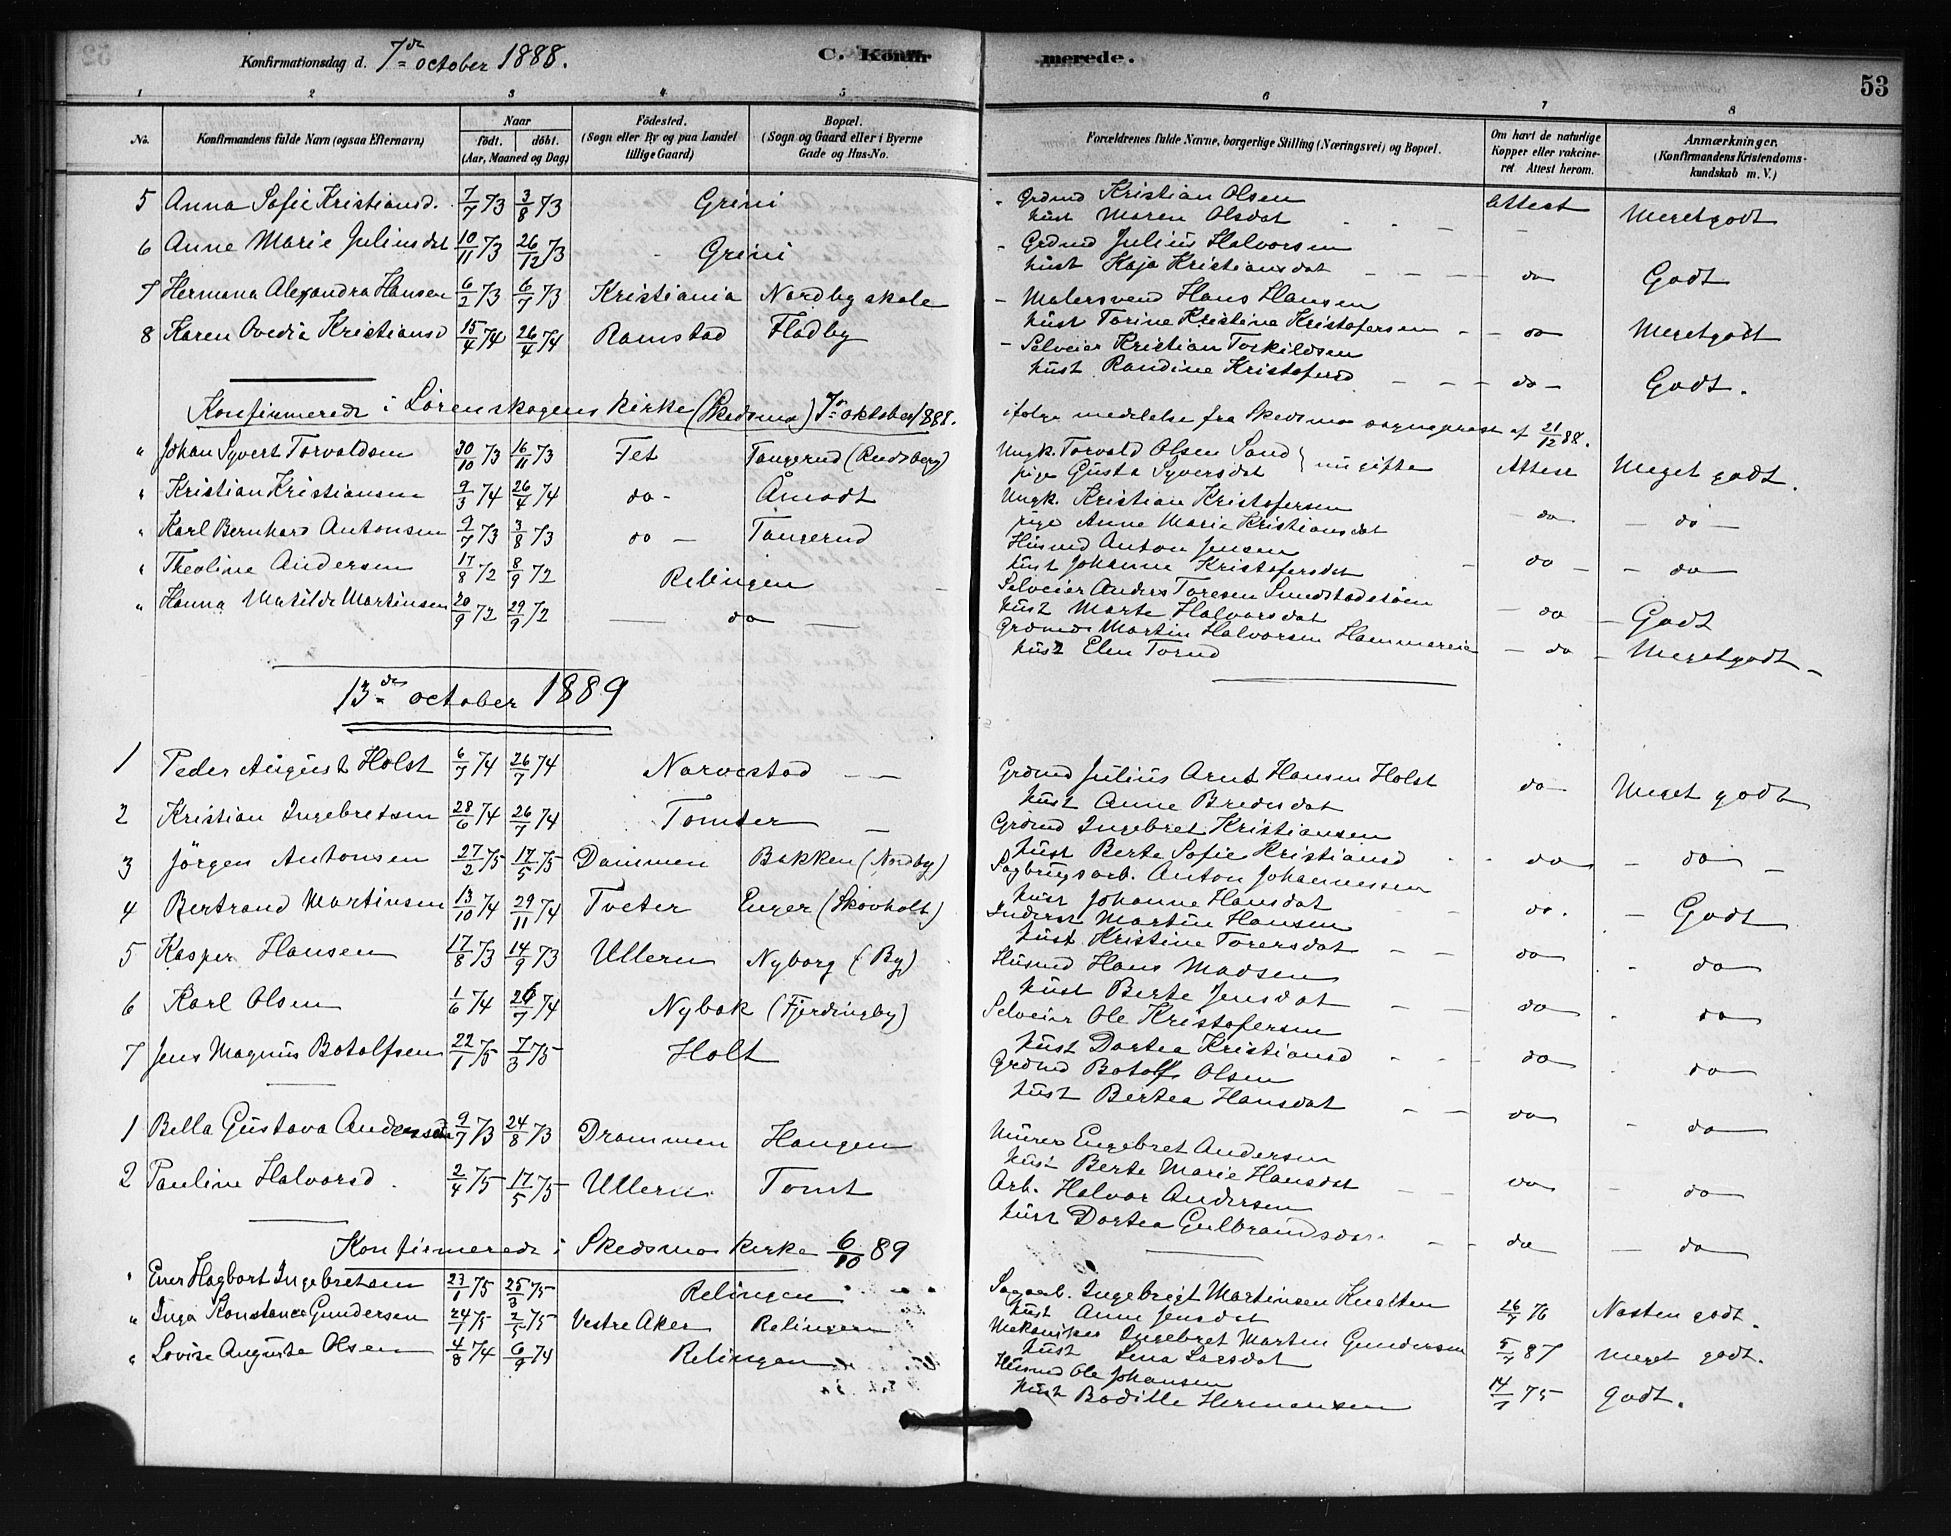 Konfirmationsdag d. 7de october 1888. C. Konfirmerede. 53
1 2 3 4 5 6 7 8
No. Konfirmandens fulde Navn (ogsaa Efternavn) Naar födt. döbt. (Aar, Maaned og Dag) Födested. (Sogn eller By og paa Landet tillige Gaard) Bopæl. (Sogn og Gaard eller i Byerne Gade og Hus-No. Forældrenes fulde Navne, borgerlige Stilling (Næringsvei) og Bopæl. Om havt de naturlige Kopper eller vakcineret Attest herom. Anmærkninger. (Konfirmandens Kristendomskundskab m. V.)
5 Anna Sofie Kristiansd. 7/7 73 3/8 73 Grini Grdmd Kristian Olsen attest Megetgodt
hust Maren Olsdat
6 Anne Marie Juliusdat 10/11 73 26/12 73 Grini Grdmd Julius Halvorsen do Godt
hust Kaja Kristiansdat
7 Hermana Alexandra Hansen 6/2 73 6/7 73 Kristiania Nordby skole Malersvend Hans Hansen do Megetgodt
hust Torine Kristine Kristofersen
8 Karen Ovedia Kristiansd 15/4 74 26/4 74 Ramstad Fladby Selveier Kristian Torkildsen do Godt.
hust Randine Kristofersd
Konfirmerede i Lørenskogens kirke (Skedsmo) 7de oktober 1888. ifølge meddelelse fra Skedsmo sogneprest af 21/12 88.
" Johan Syvert Torvaldsen 30/10 73 16/11 73 Fet Tangerud (Rudsberg) Ungk. Torvald Olsen Sand } ugifte Attest Meget godt.
pige Gusta Syversdat
" Kristian Kristiansen 9/3 74 26/4 74 do Åmodt Ungk. Kristian Kristofersen do do
pige Anne Marie Kristiansdat
" Karl Bernhard Antonsen 9/7 73 3/8 73 do Tangerud Husmd Anton Jensen do do
hust Johanne Kristofersdat
" Theoline Andersen 17/8 72 8/9 72 Relingen Selveier Anders Toresen Sundstadeiøen do Godt
hust Marte Halvorsdat
" Hanna Matilde Martinsen 20/9 72 29/9 72 do Grdmd Martin Halvorsen Hammereie do Megetgodt
hust Elen Tornd
13de october 1889
1 Peder August Holst 6/7 74 26/7 74 Narvestad Grdmd Julius Arnt Hansen Holst do Meget godt
hust Anne Bredesdat
2 Kristian Ingebretsen 28/6 74 26/7 74 Tomter Grdmd Ingebret Kristiansen do do
hust Berte Sofie Kristiansd
3 Jörgen Antonsen 27/2 75 17/5 75 Dammen Bakken (Nordby) Sagbrugsarb. Anton Johannessen do. Godt
hust Johanne Hansdat
4 Bertrand Martinsen 13/10 74 29/11 74 Tveter Enger (Skovholt) Inderst Martin Hansen do do
hust Kristine Torersdat
5 Kasper Hansen 17/8 73 14/9 73 Ullern Nyborg (By) Husmd Hans Madsen do do
hust Berte Jensdat
6 Karl Olsen 1/6 74 26/7 74 Nybak (Fjerdingby) Selveier Ole Kristofersen do do
hust Dortea Kristiansd
7 Jens Magnus Botolfsen 22/1 75 7/3 75 Holt Grdmd Botolf Olsen do do
hust Bertea Hansdat
1 Bella Gustava Anderssen 9/7 73 24/8 73 Drammen Haugen Murer Engebret Andersen do do
hust Berte Marie Hansdat
2 Pauline Halvorsd. 2/4 75 17/5 75 Ullern Tomt Arb. Halvor Andersen do do
hust Dortea Gulbrandsdat
Konfirmerede i Skedsmo kirke 6/10 89
" Ener Hagbart Ingebretsen 23/1 75 25/3 75 Relingen Sagarb. Ingebrigt Martinsen Knatten 26/9 76 Næsten godt.
hust Anne Jensdat
" Inga Konstance Gundersen 24/1 75 2/5 75 Vestre Aker Relingen Mekaniker Ingebret Martin Gundersen 5/7 87 meget godt.
hust Lena Larsdat
" Lovise Auguste Olsen 4/8 74 6/9 74 Relingen Husmd Ole Johansen 14/1 75 godt.
hust Bodille Hermansen